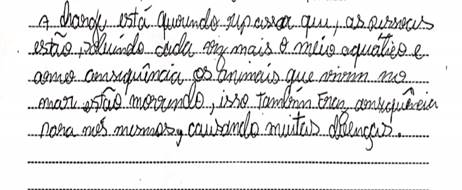 A charge está querendo repassar que, as pessoas
estão, poluindo cada vez mais o meio aquático e
como consequência os animais que vivem no
mar estão morrendo, isso também traz consequência
para nós mesmos, causando muitas doenças.